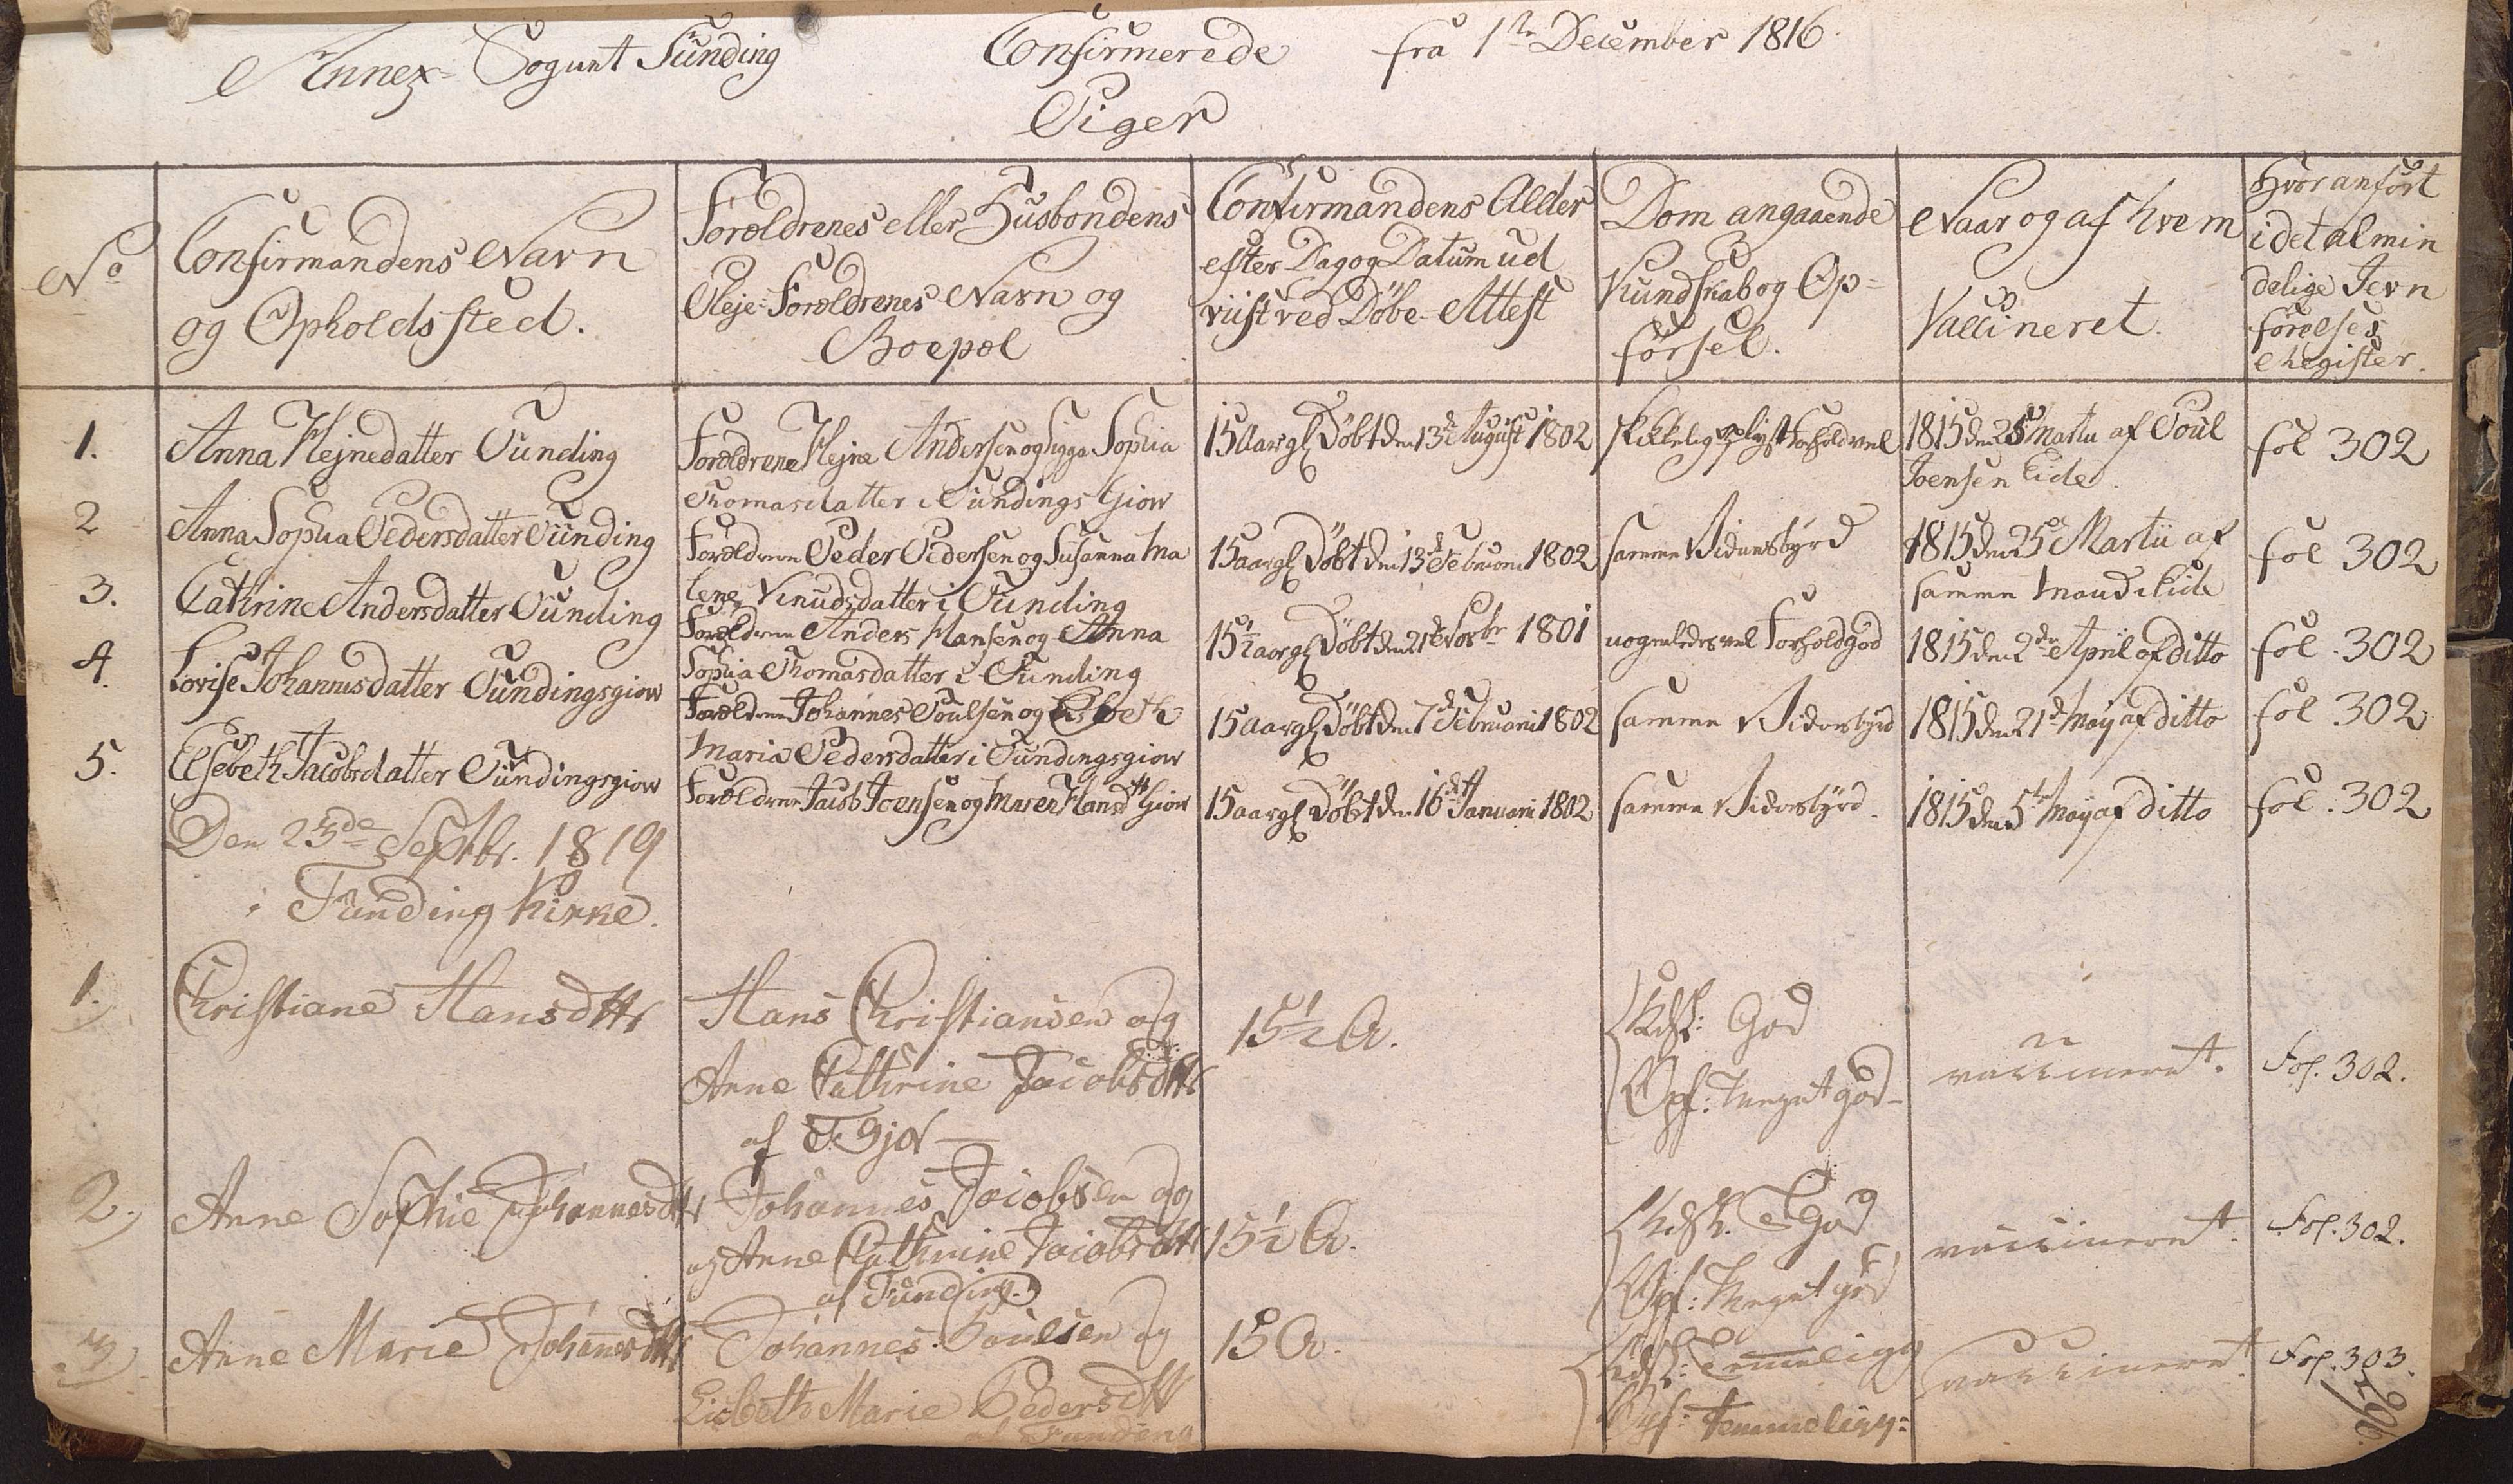 Annex-Sognet Funding Confirmerede fra 1ste December 1816.
Piger
No
Confirmandens Navn
og Opholdssted.
Forældrenes eller Husbondens
Pleje-Forældrenes Navn og
Boepæl
Confirmandens Alder
efter Dag og Datum ud
viist ved Döbe-Attest
Dom angaaende
Kundskab og Op-
försel.
Naar og af hvem
Vaccineret.
Hvor anfört
i det almin
delige Jevn
förelses
Register.
1.
Anna Hejnedatter Funding
Forældrene Hejne Andersen og Sigga Sophia
Thomasdatter i Fundings Giow
15 Aar gl Döbt den 13de August 1802
skikkelig oplyst Forhold vel
1815 den 25 Martii af Poul
Joensen Eide.
fol 302
2
Anna Sophia Pedersdatter Funding
Forældrene Peder Pedersen og Susanna Ma
lene Knudsdatter i Funding
15 aar gl Döbt den 13de Februari 1802
samme Vidnesbyrd
1815 den 25de Martii af
samme Mand i Eide
fol 302
3.
Cathrine Andersdatter Funding
Forældrene Anders Hansen og Anna
Sophia Thomasdatter i Funding
15½ aar gl Döbt den 21de Novbr 1801
nogenledes vel Forhold god
1815 den 2den April af ditto
fol. 302
4.
Lovise Johannesdatter Fundingsgiow
Forældrene Johannes Poulsen og Elsbeth
Maria Pedersdatter i Fundingsgiow
15 aar gl Döbt den 7de Februari 1802
samme Vidnesbyrd
1815 den 21de May af ditto
fol 302
5.
Elsebeth Jacobsdatter Fundingsgiow
Forældrene Jacob Joensen og Maren Hansdtt Giow
15 aar gl Döbt den 16de Januari 1802
samme Vidnesbyrd.
1815 den 5te May af ditto
fol. 302
Den 25de Septbr. 1819
i Funding Kirke.
1.
Christiane Hansdttr
Hans Christiansen og
Anne Cathrine Jacobsdttr
af F. Gjov
15½ A.
Kdsk: God
Opf: Meget god
vaccineret.
Fol. 302.
2.
Anne Sophie Johannesdttr
Johannes Jacobsen og
og Anne Cathrine Jacobsdttr
af Funding.
15½ A.
Kdsk. God
Opf: Meget god
vaccineret.
Fol. 302.
3
Anne Marie Johannesdttr
Johannes Poulsen og
Lisbeth Marie Pedersdttr
af Funding
15 A.
Kdsk: Temmelig
Opf: Temmelig:
vaccineret.
Fol. 303.